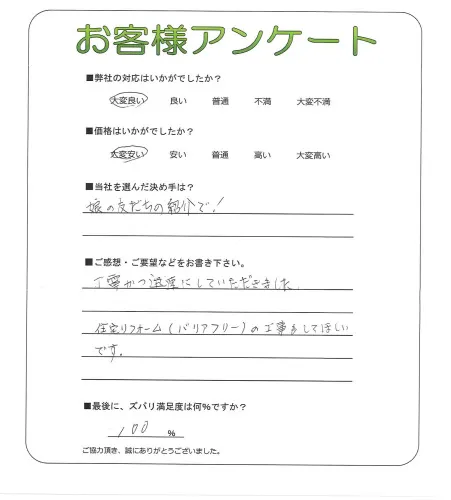 お客様アンケート
■弊社の対応はいかがでしたか？
大変良い 良い 普通 不満 大変不満
■価格はいかがでしたか？
大変安い 安い 普通 高い 大変高い
■当社を選んだ決め手は？
娘の友だちの紹介で！
■ご感想・ご要望などをお書き下さい。
丁寧かつ迅速にしていただきました。
住宅リフォーム（バリアフリー）の工事もしてほしい
です。
■最後に、ズバリ満足度は何%ですか？
100 %
ご協力頂き、誠にありがとうございました。